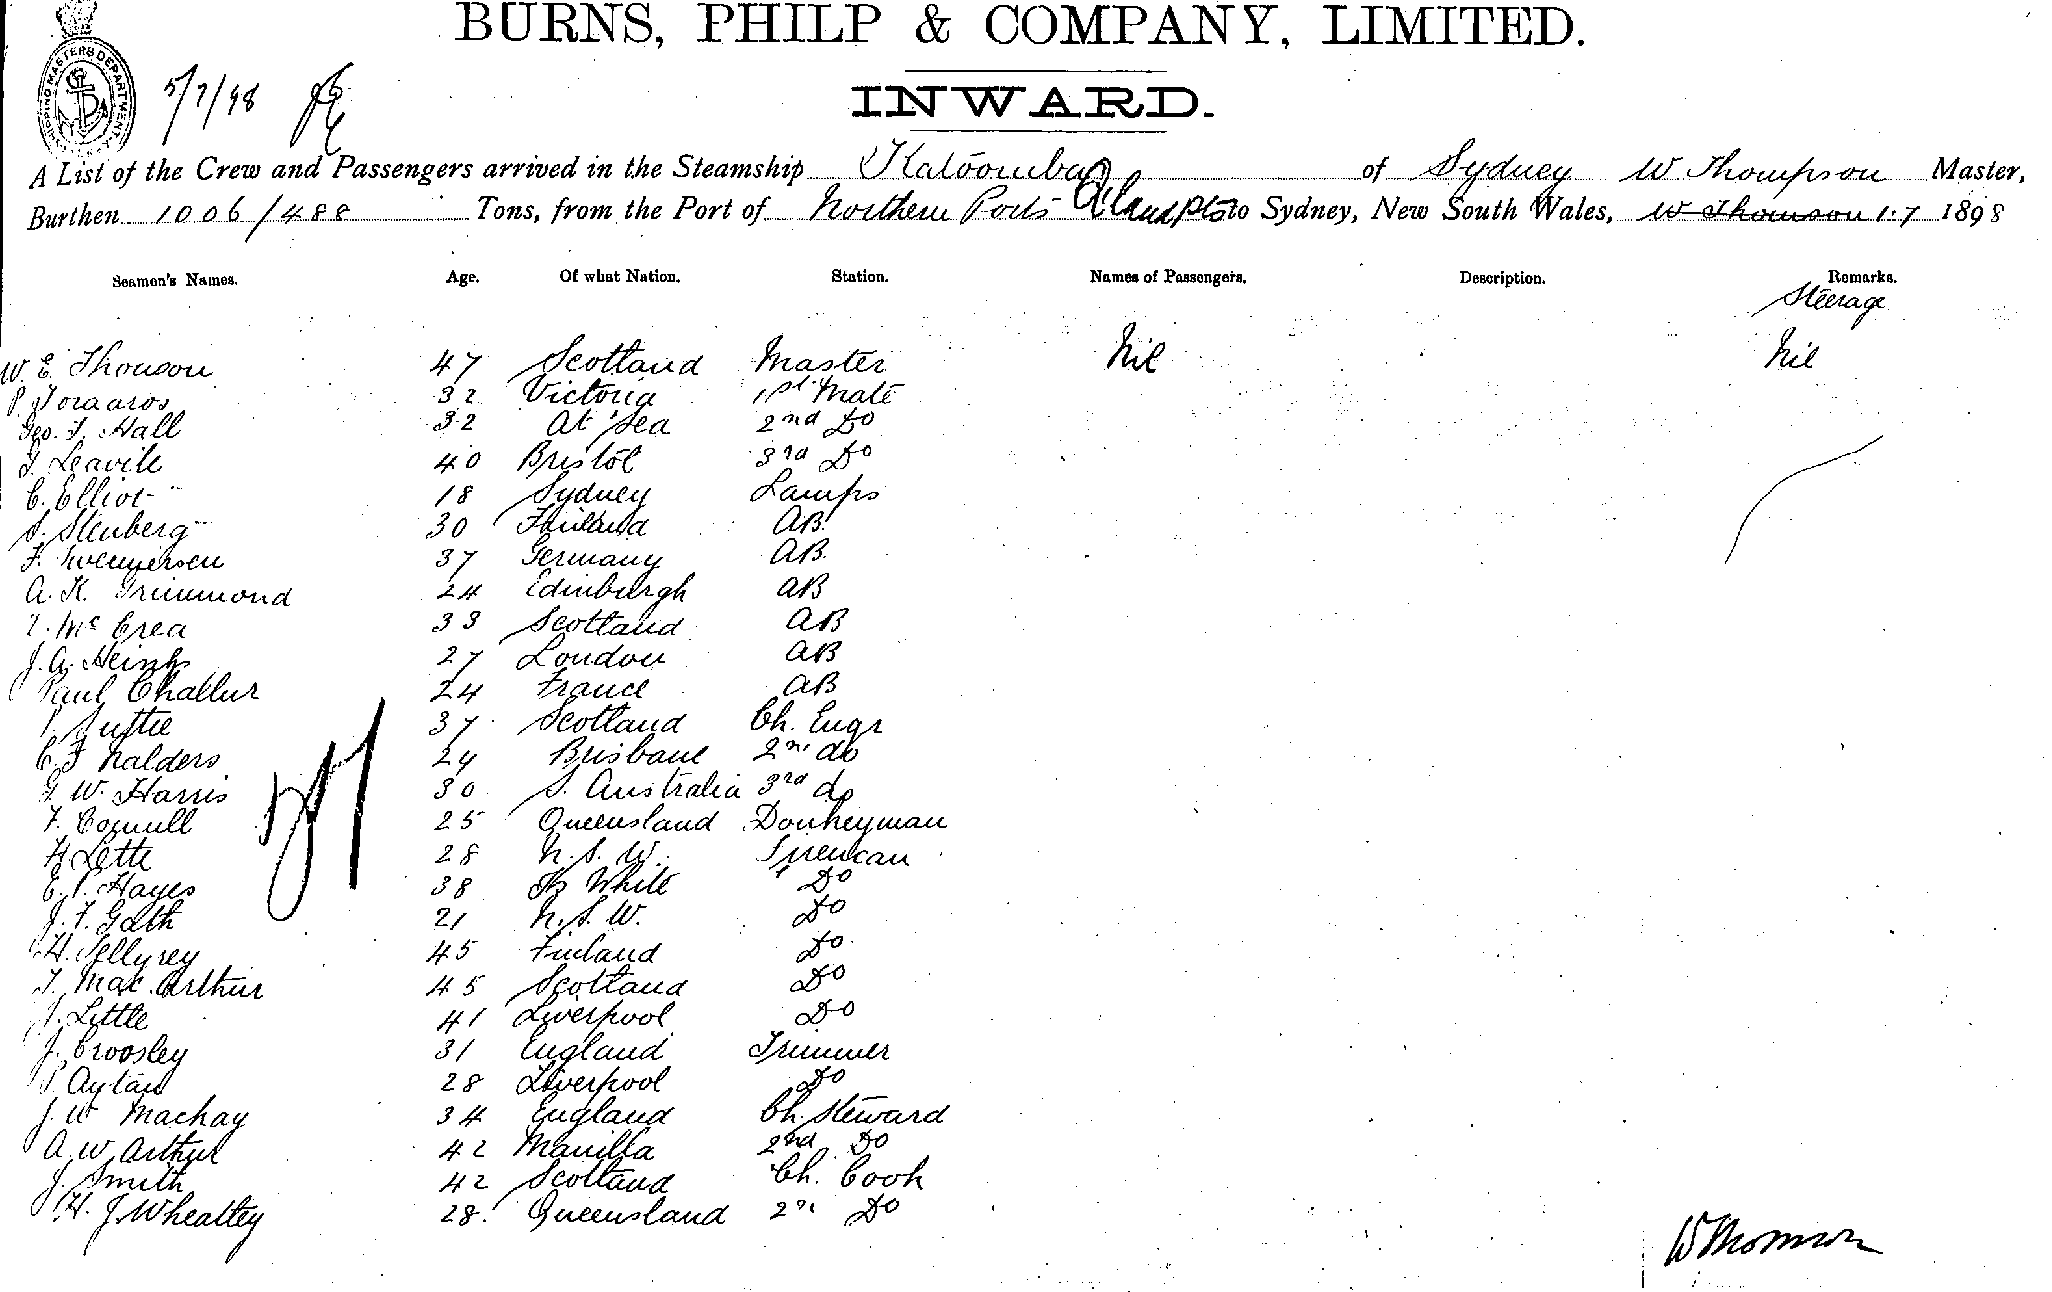 BURNS, PHILP & COMPANY, LIMITED.
INWARD.
SHIPPING MASTERS DEPARTMENT
5/7/98
A List of the Crew and Passengers arrived in the Steamship Katoomba of Sydney W Thompson Master,
Burthen 1006/488 Tons, from the Port of Northern Ports to Sydney, New South Wales, W Thomson 1.7 1898
Seamen's Names. Age. Of what Nation. Station. Names of Passengers. Description. Remarks.
Steerage
W. E. Thomson 47 Scotland Master Nil Nil
P. 32 Victoria 1st Mate
Geo. F. Hall 32 At Sea 2nd Do
40 Bristol 3rd Do
C. Elliot 18 Sydney Lamps
S. Stenberg 30 Finland AB
F. 37 Germany AB
A. K. Grimmond 24 Edinburgh AB
McCrea 33 Scotland AB
J. A. 27 London AB
Paul Challur 24 France AB
Suttie 37 Scotland Ch. Engr
C. F. Nalders 24 Brisbane 2nd do
G. W. Harris 30 S. Australia 3rd do
F. 25 Queensland Donkeyman
H. Lette 28 N. S. W. Fireman
E. P. Hayes 38 White Do
J. F. Gath 21 N. S. W. Do
H. 45 Finland Do
T. MacArthur 45 Scotland Do
J. Little 41 Liverpool Do
J. Croosley 31 England Trimmer
28 Liverpool Do
J. W Mackay 34 England Ch. Steward
A. W. Arthur 42 Manilla 2nd Do
J. Smith 42 Scotland Ch. Cook
H. J. Wheatley 28. Queensland 2nd Do
W Thomson